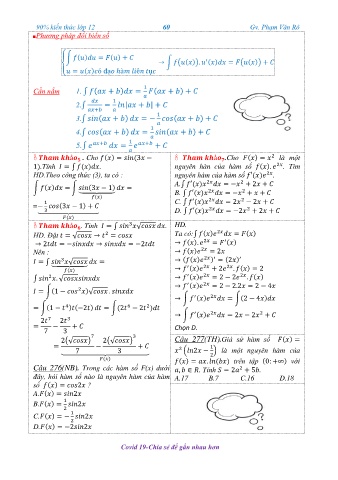 90% kiến thức lớp 12 60 Gv. Phạm Văn Rô
■Phương pháp đổi biến số
{∫f(u)du = F(u) + C
u = u(x)có đạo hàm liên tục → ∫f(u(x)).u′(x)dx = F(u(x)) + C
Cần nắm 1. ∫f(ax + b)dx = 1/a F(ax + b) + C
2. ∫dx/(ax+b) = 1/a ln|ax + b| + C
3. ∫sin(ax + b) dx = −1/a cos(ax + b) + C
4. ∫cos(ax + b) dx = 1/a sin(ax + b) + C
5. ∫e^(ax+b) dx = 1/a e^(ax+b) + C
Tham khảo5 . Cho f(x) = sin(3x −
1).Tính I = ∫f(x)dx.
HD.Theo công thức (3), ta có :
∫f(x)dx = ∫sin(3x − 1) dx =
f(x)
= −1/3 cos(3x − 1) + C
F(x)
Tham khảo6. Tính I = ∫sin³x√cosx dx.
HD. Đặt t = √cosx → t² = cosx
→ 2tdt = −sinxdx → sinxdx = −2tdt
Nên :
I = ∫sin³x√cosx dx =
f(x)
∫sin²x. √cosxsinxdx
I = ∫(1 − cos²x)√cosx . sinxdx
= ∫(1 − t⁴)t(−2t) dt = ∫(2t⁶ − 2t²)dt
= 2t⁷/7 − 2t³/3 + C
= 2(√cosx)⁷/7 − 2(√cosx)³/3 + C
F(x)
Câu 276(NB). Trong các hàm số F(x) dưới
đây, hỏi hàm số nào là nguyên hàm của hàm
số f(x) = cos2x ?
A.F(x) = sin2x
B.F(x) = 1/2 sin2x
C.F(x) = −1/2 sin2x
D.F(x) = −2sin2x
Tham khảo7.Cho F(x) = x² là một
nguyên hàm của hàm số f(x). e^(2x). Tìm
nguyên hàm của hàm số f′(x)e^(2x).
A.∫f′(x)e^(2x)dx = −x² + 2x + C
B. ∫f′(x)e^(2x)dx = −x² + x + C
C. ∫f′(x)e^(2x)dx = 2x² − 2x + C
D. ∫f′(x)e^(2x)dx = −2x² + 2x + C
HD.
Ta có:∫f(x)e^(2x)dx = F(x)
→ f(x). e^(2x) = F′(x)
→ f(x)e^(2x) = 2x
→ (f(x)e^(2x))′ = (2x)′
→ f′(x)e^(2x) + 2e^(2x). f(x) = 2
→ f′(x)e^(2x) = 2 − 2e^(2x). f(x)
→ f′(x)e^(2x) = 2 − 2.2x = 2 − 4x
→ ∫f′(x)e^(2x)dx = ∫(2 − 4x)dx
→ ∫f′(x)e^(2x)dx = 2x − 2x² + C
Chọn D.
Câu 277(TH).Giả sử hàm số F(x) =
x² (ln2x − 1/2) là một nguyên hàm của
f(x) = ax. ln(bx) trên tập (0; +∞) với
a, b ∈ R. Tính S = 2a² + 5b.
A.17 B.7 C.16 D.18
Covid 19-Chia sẻ để gần nhau hơn